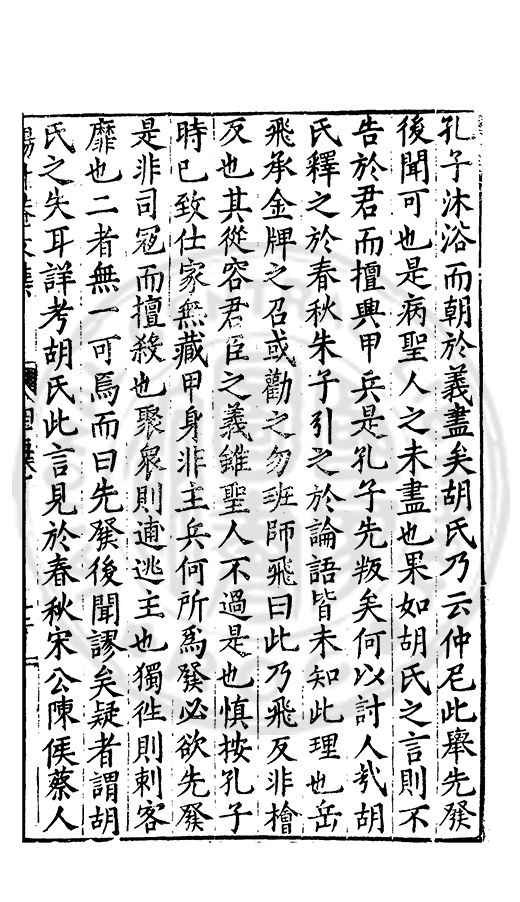 孔子沐浴而朝於義盡矣胡氏乃云仲尼此舉先發
後聞可也是病聖人之未盡也果如胡氏之言則不
告於君而擅興甲兵是孔子先叛矣何以討人㢤胡
氏釋之於春秋朱子引之於論語皆未知此理也岳
飛承金牌之召或勸之勿班師飛曰此乃飛反非檜
反也其從容君臣之義雖聖人不過是也慎按孔子
時已致仕家無藏甲身非主兵何所爲發必欲先發
是非司冦而擅殺也聚衆則逋逃主也獨徃則刺客
靡也二者無一可焉而曰先發後聞謬矣疑者謂胡
氏之失耳詳考胡氏此言見於春秋宋公陳侯蔡人